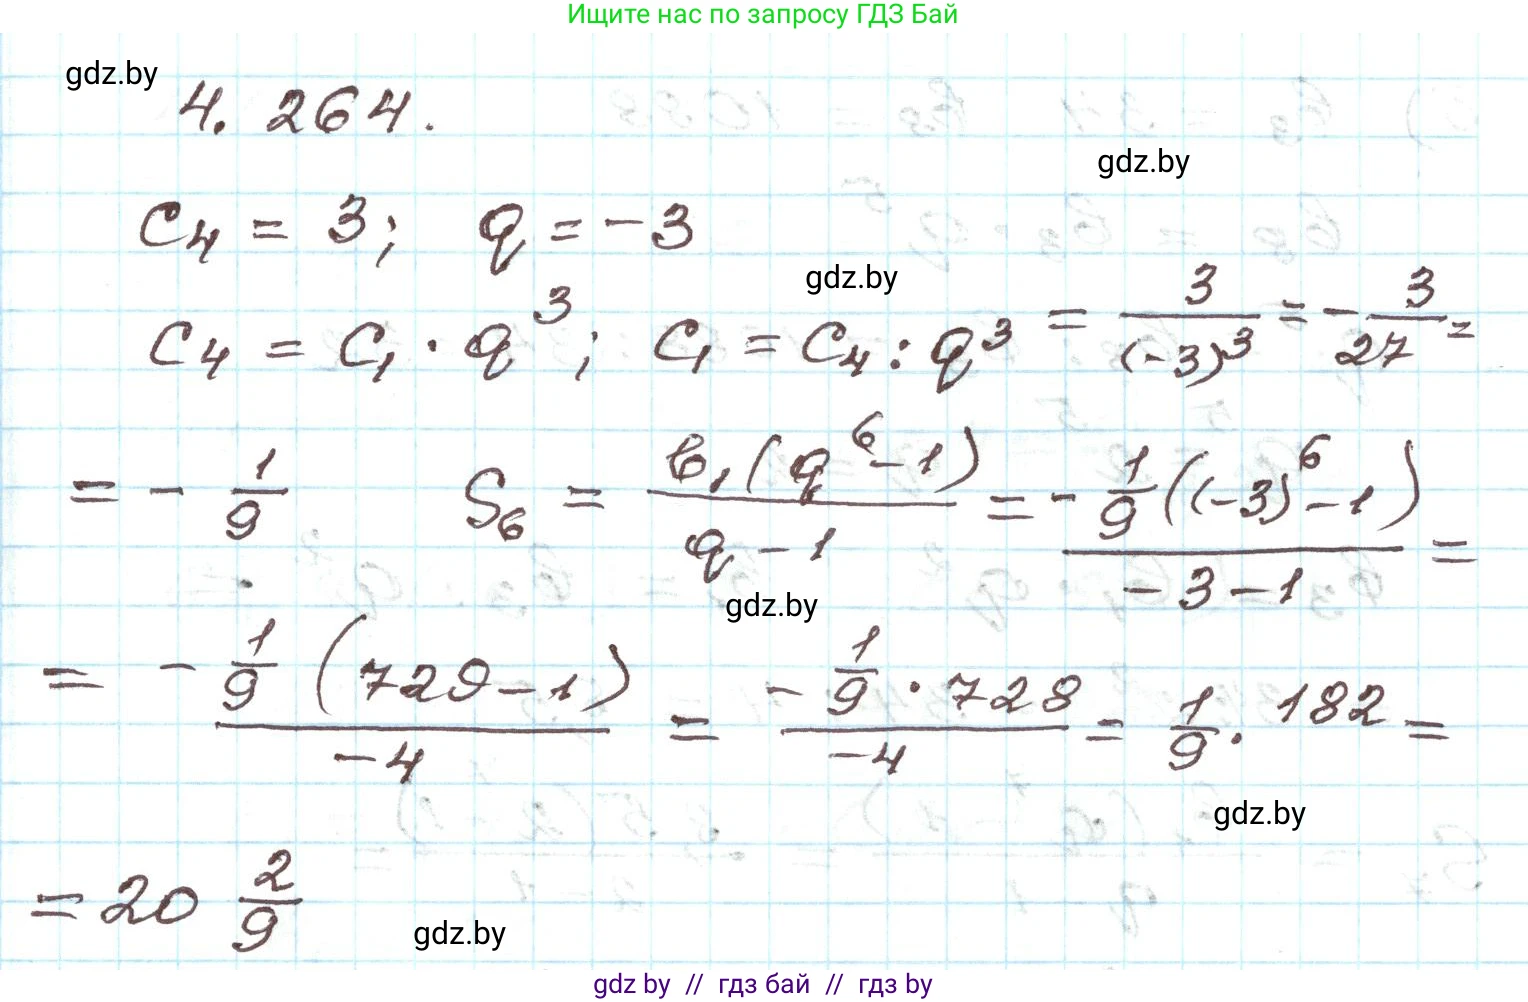 Ищите нас по запросу ГДЗ Бай
gdz.by
4.264.
gdz.by
c₄ = 3; q = -3
gdz.by
c₄ = c₁ · q³; c₁ = c₄ : q³ = 3/(-3)³ = -3/27 =
= -1/9 S₆ = b₁(q⁶-1)/(q-1) = -1/9((-3)⁶-1)/(-3-1) =
gdz.by
= -1/9(729-1)/(-4) = -1/9 · 728/(-4) = 1/9 · 182 =
gdz.by
= 20 2/9
gdz.by
gdz by // гдз бай // гдз by